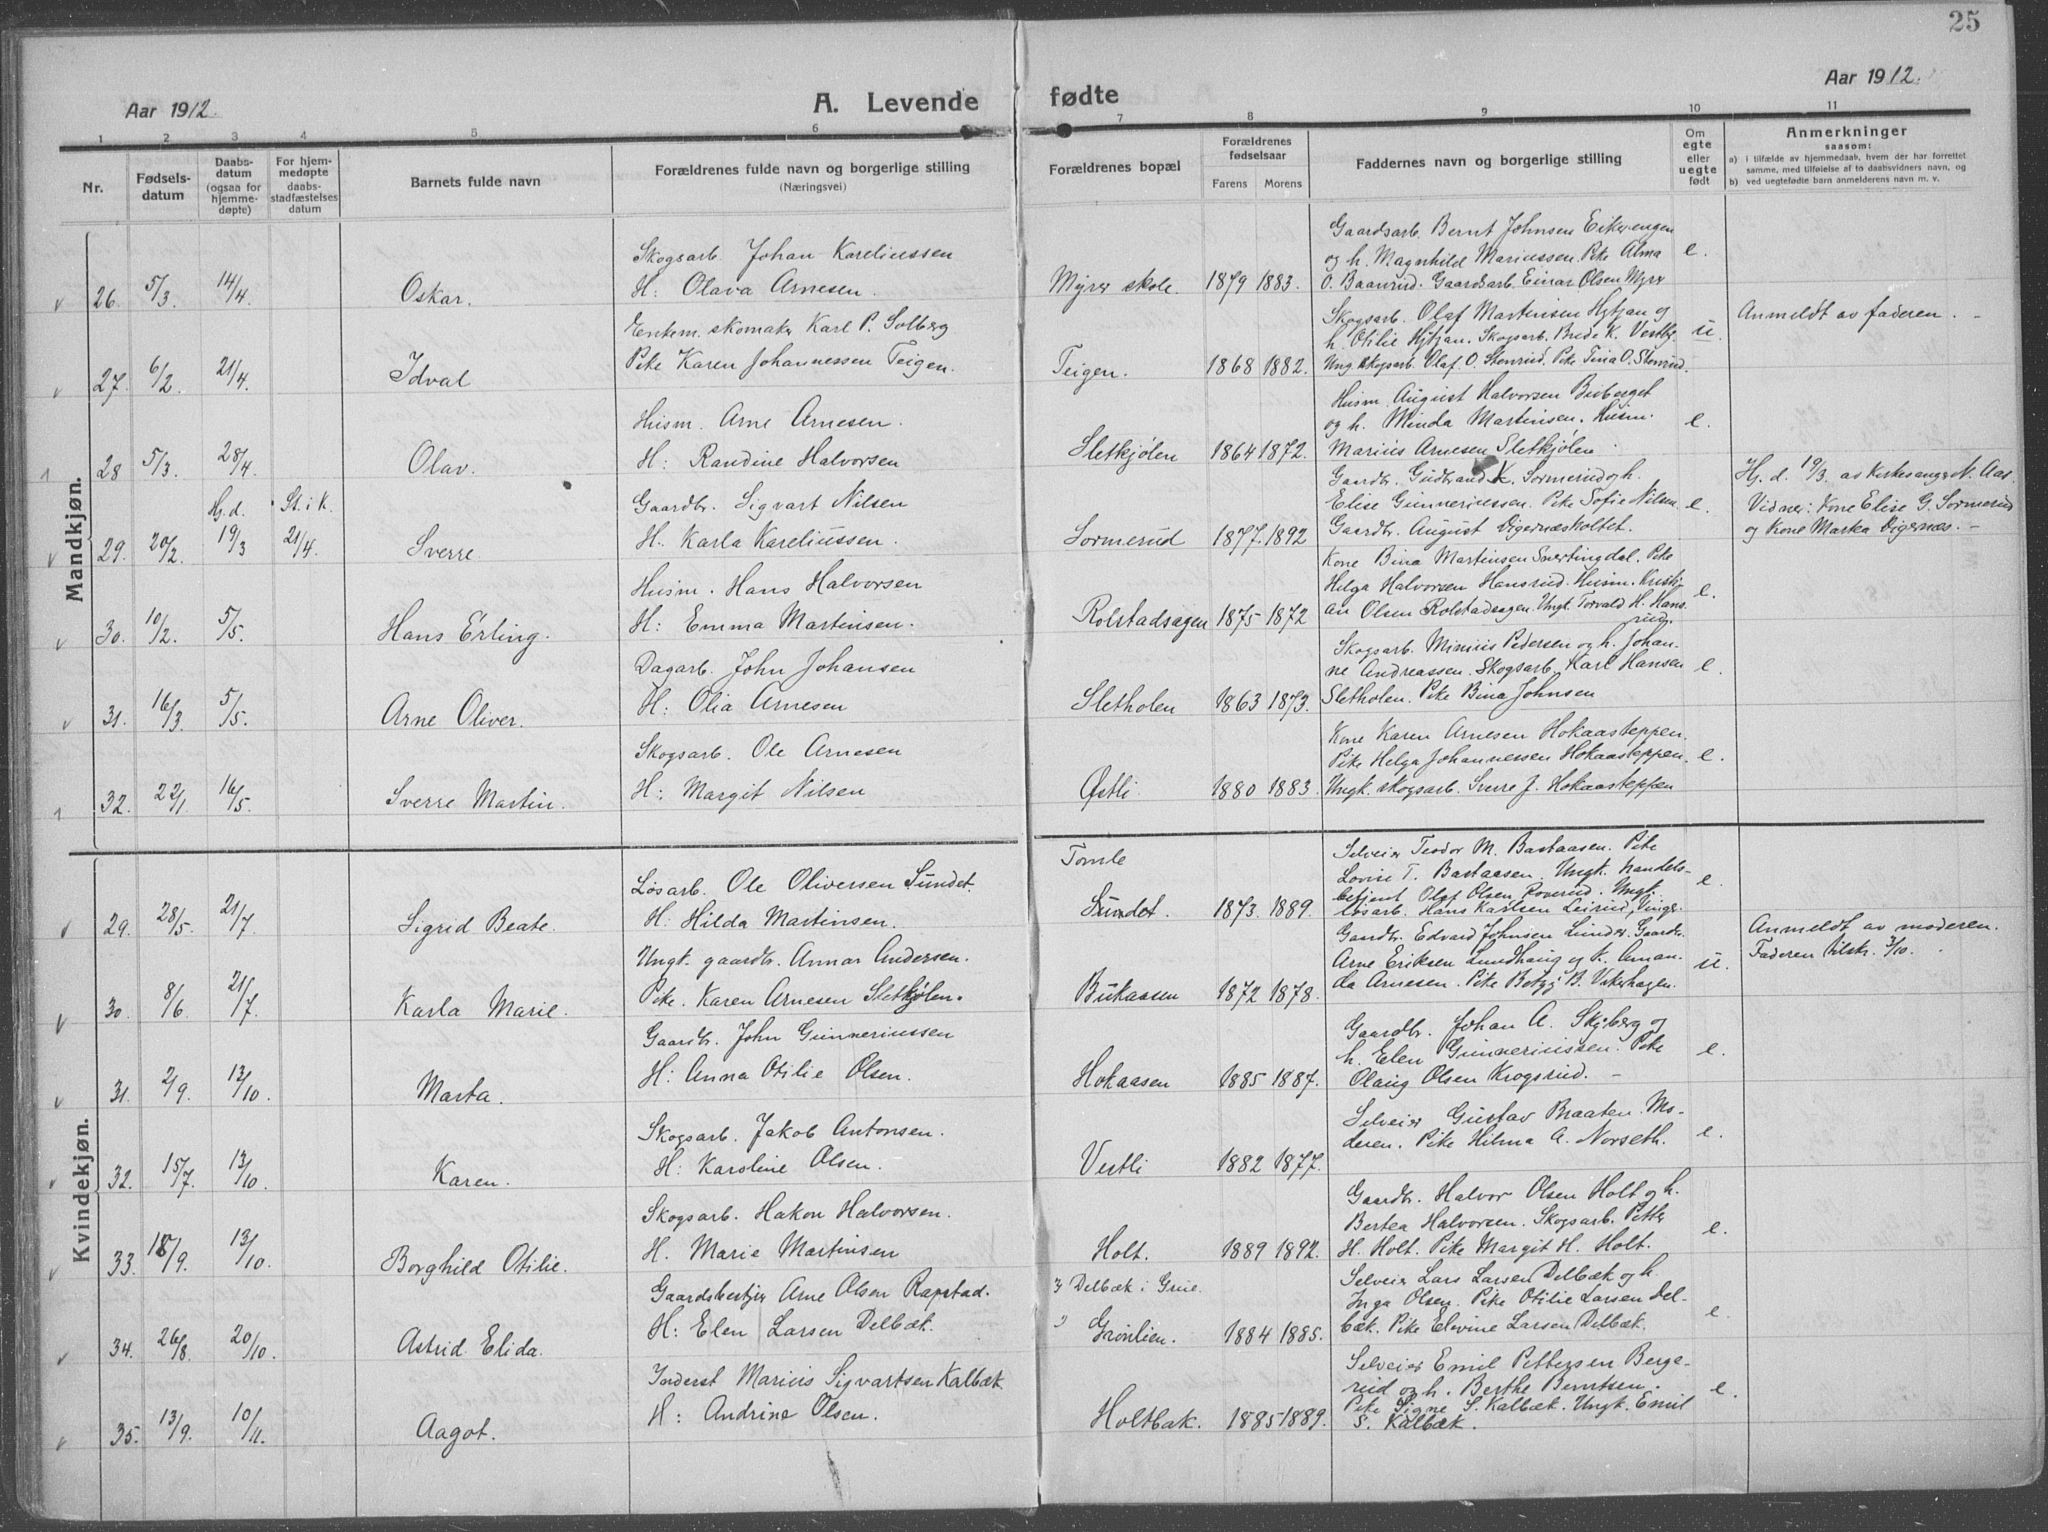 25
Aar 1912.
A. Levende
fødte
Aar 1912.
1 2 3 4 5 6 7 8 9 10 11
Nr.
Fødselsdatum
Daabsdatum (ogsaa for hjemmedøpte)
For hjemmedøpte daabsstadfæstelses datum
Barnets fulde navn
Forældrenes fulde navn og borgerlige stilling
(Næringsvei)
Forældrenes bopæl
Forældrenes fødselsaar
Farens Morens
Faddernes navn og borgerlige stilling
Om egte eller uegte født
Anmerkninger
saasom:
a) i tilfælde av hjemmedaab, hvem der har forrettet samme, med tilføielse af to daabsvidners navn, og
b) ved uegtefødte barn anmelderens navn m. v.
Mandkjøn.
26. 5/3 14/4
Oskar.
Skogsarb. Johan Kareliussen
H: Olava Arnesen.
Myrer skole. 1879 1883.
Gaardsarb. Bernt Johnsen Eikerengen
og h. Magnhild Mariussen. Pike Alma
O. Baanrud. Gaardsarb. Einar Olsen Myrer
e.
27. 6/2 21/4
Idval
Enkem. skomaker Karl P. Solberg
Pike Karen Johannessen Teigen.
Teigen. 1868 1882.
Skogsarb. Olaf Martinsen Hytjan og
h. Otilie Hytjan. Skogsarb. Brede K. Vestby.
Ung. skogsarb. Olaf O. Stenrud. Pike Tina O. Stenrud.
u.
Anmeldt av faderen. -
28 5/3 28/4
Olav.
Husm. Arne Arnesen.
H: Randine Halvorsen
Sletkjølen 1864 1872.
Husm. August Halvorsen Buberget
og h. Minda Martinsen. Husm.
Marius Arnesen Sletkjølen.
e.
29. 20/2 Hj. d. 19/3 St. i K. 21/4
Sverre.
Gaardbr. Sigvart Nilsen
H. Karla Kareliussen.
Sormerud 1877. 1892
Gaardbr. Gudbrand K. Sormerud og h.
Elise Gunneriussen. Pike Sofie Nilsen
Gaardbr. August Digernæsholtet.
e.
Hj. d. 19/3. av kirkesanger N. Aas
Vidner: Kone Elise G. Sormerud
og Kone Marka Digernæs. -
30. 10/2 5/5
Hans Erling.
Husm. Hans Halvorsen
H: Emma Martinsen.
Rolstadsagen 1875 1872
Kone Bina Martinsen Svartingdal. Pike
Helga Halvorsen Hansrud. Husm. Kristi-
an Olsen Rolstadsagen. Ungk. Torvald H. Hans-
rud.
e.
31. 16/3 5/5
Arne Oliver.
Dagarb. John Johansen
H: Olia Arnesen
Sletholen 1863 1873.
Skogsarb. Minius Pedersen og h. Johan-
ne Andreassen. Skogsarb. Karl Hansen
Sletholen. Pike Bina Johnsen
e.
32. 22/1 16/5
Sverre Martin.
Skogsarb. Ole Arnesen
H: Margit Nilsen
Østli 1880 1883.
Kone Karen Arnesen Hokaasteppen.
Pike Helga Johannessen Hokaasteppen.
Ungk. skogsarb. Sverre J. Hokaasteppen
e.
Kvindekjøn.
29. 28/5 21/7
Sigrid Beate.
Løsarb. Ole Oliversen Sundet.
H. Hilda Martinsen.
Tomle
Sundet. 1873 1889.
Selveier Teodor M. Bastaasen. Pike
Lovise T. Bastaasen. Ungk. handels-
betjent Olaf Olsen Roverud. Ungk.
løsarb. Hans Karlsen Leirud, Vinger.
e.
30. 8/6 21/7
Karla Marie.
Ungk. gaardbr. Annar Andersen.
Pike. Karen Arnesen Sletkjølen.
Bukaasen 1872 1878.
Gaardbr. Edvard Johnsen Lunder. Gaardbr.
Arne Eriksen Lundhaug og K. Aman-
da Arnesen. Pike Betzy B. Vikerhagen.
u.
Anmeldt av moderen.
Faderen tilstr. 3/10.
31. 2/9 13/10
Marta.
Gaardbr. John Gunneriussen
H: Anna Otilie Olsen.
Hokaasen 1885 1887.
Gaardbr. Johan A. Skyberg og
h. Elen Gunneriussen. Pike
Olaug Olsen Krogsrud. -
e.
32. 15/7 13/10
Karen.
Skogsarb. Jakob Antonsen.
H: Karoline Olsen.
Vestli 1882 1877.
Selveier Gustav Braaten. Mo-
deren. Pike Hilma A. Norseth.
e.
33. 18/9 13/10
Borghild Otilie.
Skogsarb. Hakon Halvorsen.
H. Marie Martinsen
Holt. 1889 1892.
Gaardbr. Halvor Olsen Holt og h.
Bertea Halvorsen. Skogsarb. Petter
H. Holt. Pike Margit H. Holt.
e.
34. 26/8 20/10
Astrid Elida.
Gaardsbestyrer Arne Olsen Rapstad.
H: Elen Larsen Delbæk.
Delbæk i Grue.
Grønlien. 1884 1885.
Selveier Lars Larsen Delbæk og h.
Inga Olsen. Pike Otilie Larsen Del-
bæk. Pike Elevine Larsen Delbæk.
e.
35. 13/9 10/11.
Aagot.
Inderst Marius Sigvartsen Kalbæk
H: Andrine Olsen.
Holtbak. 1885 1889.
Selveier Emil Pettersen Berge-
rud og h. Berthe Berntsen.
Pike Signe S. Kalbæk. Ungk. Emil
S. Kalbæk.
e.